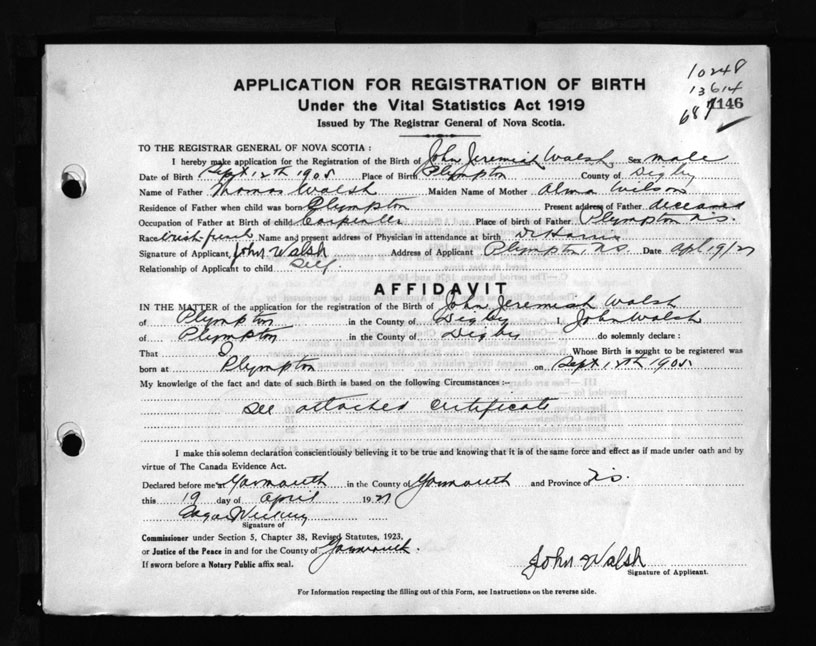 10248
13614
APPLICATION FOR REGISTRATION OF BIRTH
687 1146
Under the Vital Statistics Act 1919
Issued by The Registrar General of Nova Scotia.
TO THE REGISTRAR GENERAL OF NOVA SCOTIA :
I hereby make application for the Registration of the Birth of John Jeremiah Walsh Sex male
Date of Birth Sept 12th 1905 Place of Birth Plympton County of Digby
Name of Father Thomas Walsh Maiden Name of Mother Alma Wilson
Residence of Father when child was born Plympton Present address of Father deceased
Occupation of Father at Birth of child Carpenter Place of birth of Father Plympton N.S.
Race Irish-french Name and present address of Physician in attendance at birth Dr Harris
Signature of Applicant John Walsh Address of Applicant Plympton, N.S. Date Apl 19/27
Relationship of Applicant to child Self.
AFFIDAVIT
IN THE MATTER of the application for the registration of the Birth of John Jeremiah Walsh
of Plympton in the County of Digby I, John Walsh
of Plympton in the County of Digby do solemnly declare :
That I Whose Birth is sought to be registered was
born at Plympton on Sept 12th 1905.
My knowledge of the fact and date of such Birth is based on the following Circumstances :-
See attached certificate
I make this solemn declaration conscientiously believing it to be true and knowing that it is of the same force and effect as if made under oath and by
virtue of The Canada Evidence Act.
Declared before me at Yarmouth in the County of Yarmouth and Province of N.S.
this 19 day of April 1927
Signature of
Commissioner under Section 5, Chapter 38, Revised Statutes, 1923,
or Justice of the Peace in and for the County of Yarmouth.
If sworn before a Notary Public affix seal.
John Walsh
Signature of Applicant.
For Information respecting the filling out of this Form, see Instructions on the reverse side.